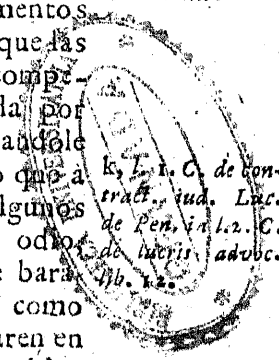 mentos
que las
compe-
da por
andole
o que a
algunos
odio,
e bara-
como
uren en
k, l. 1. C. de con-
tract. iud. Luc.
de Pen. in l. 2. C.
de lucris advoc.
lib. 12.